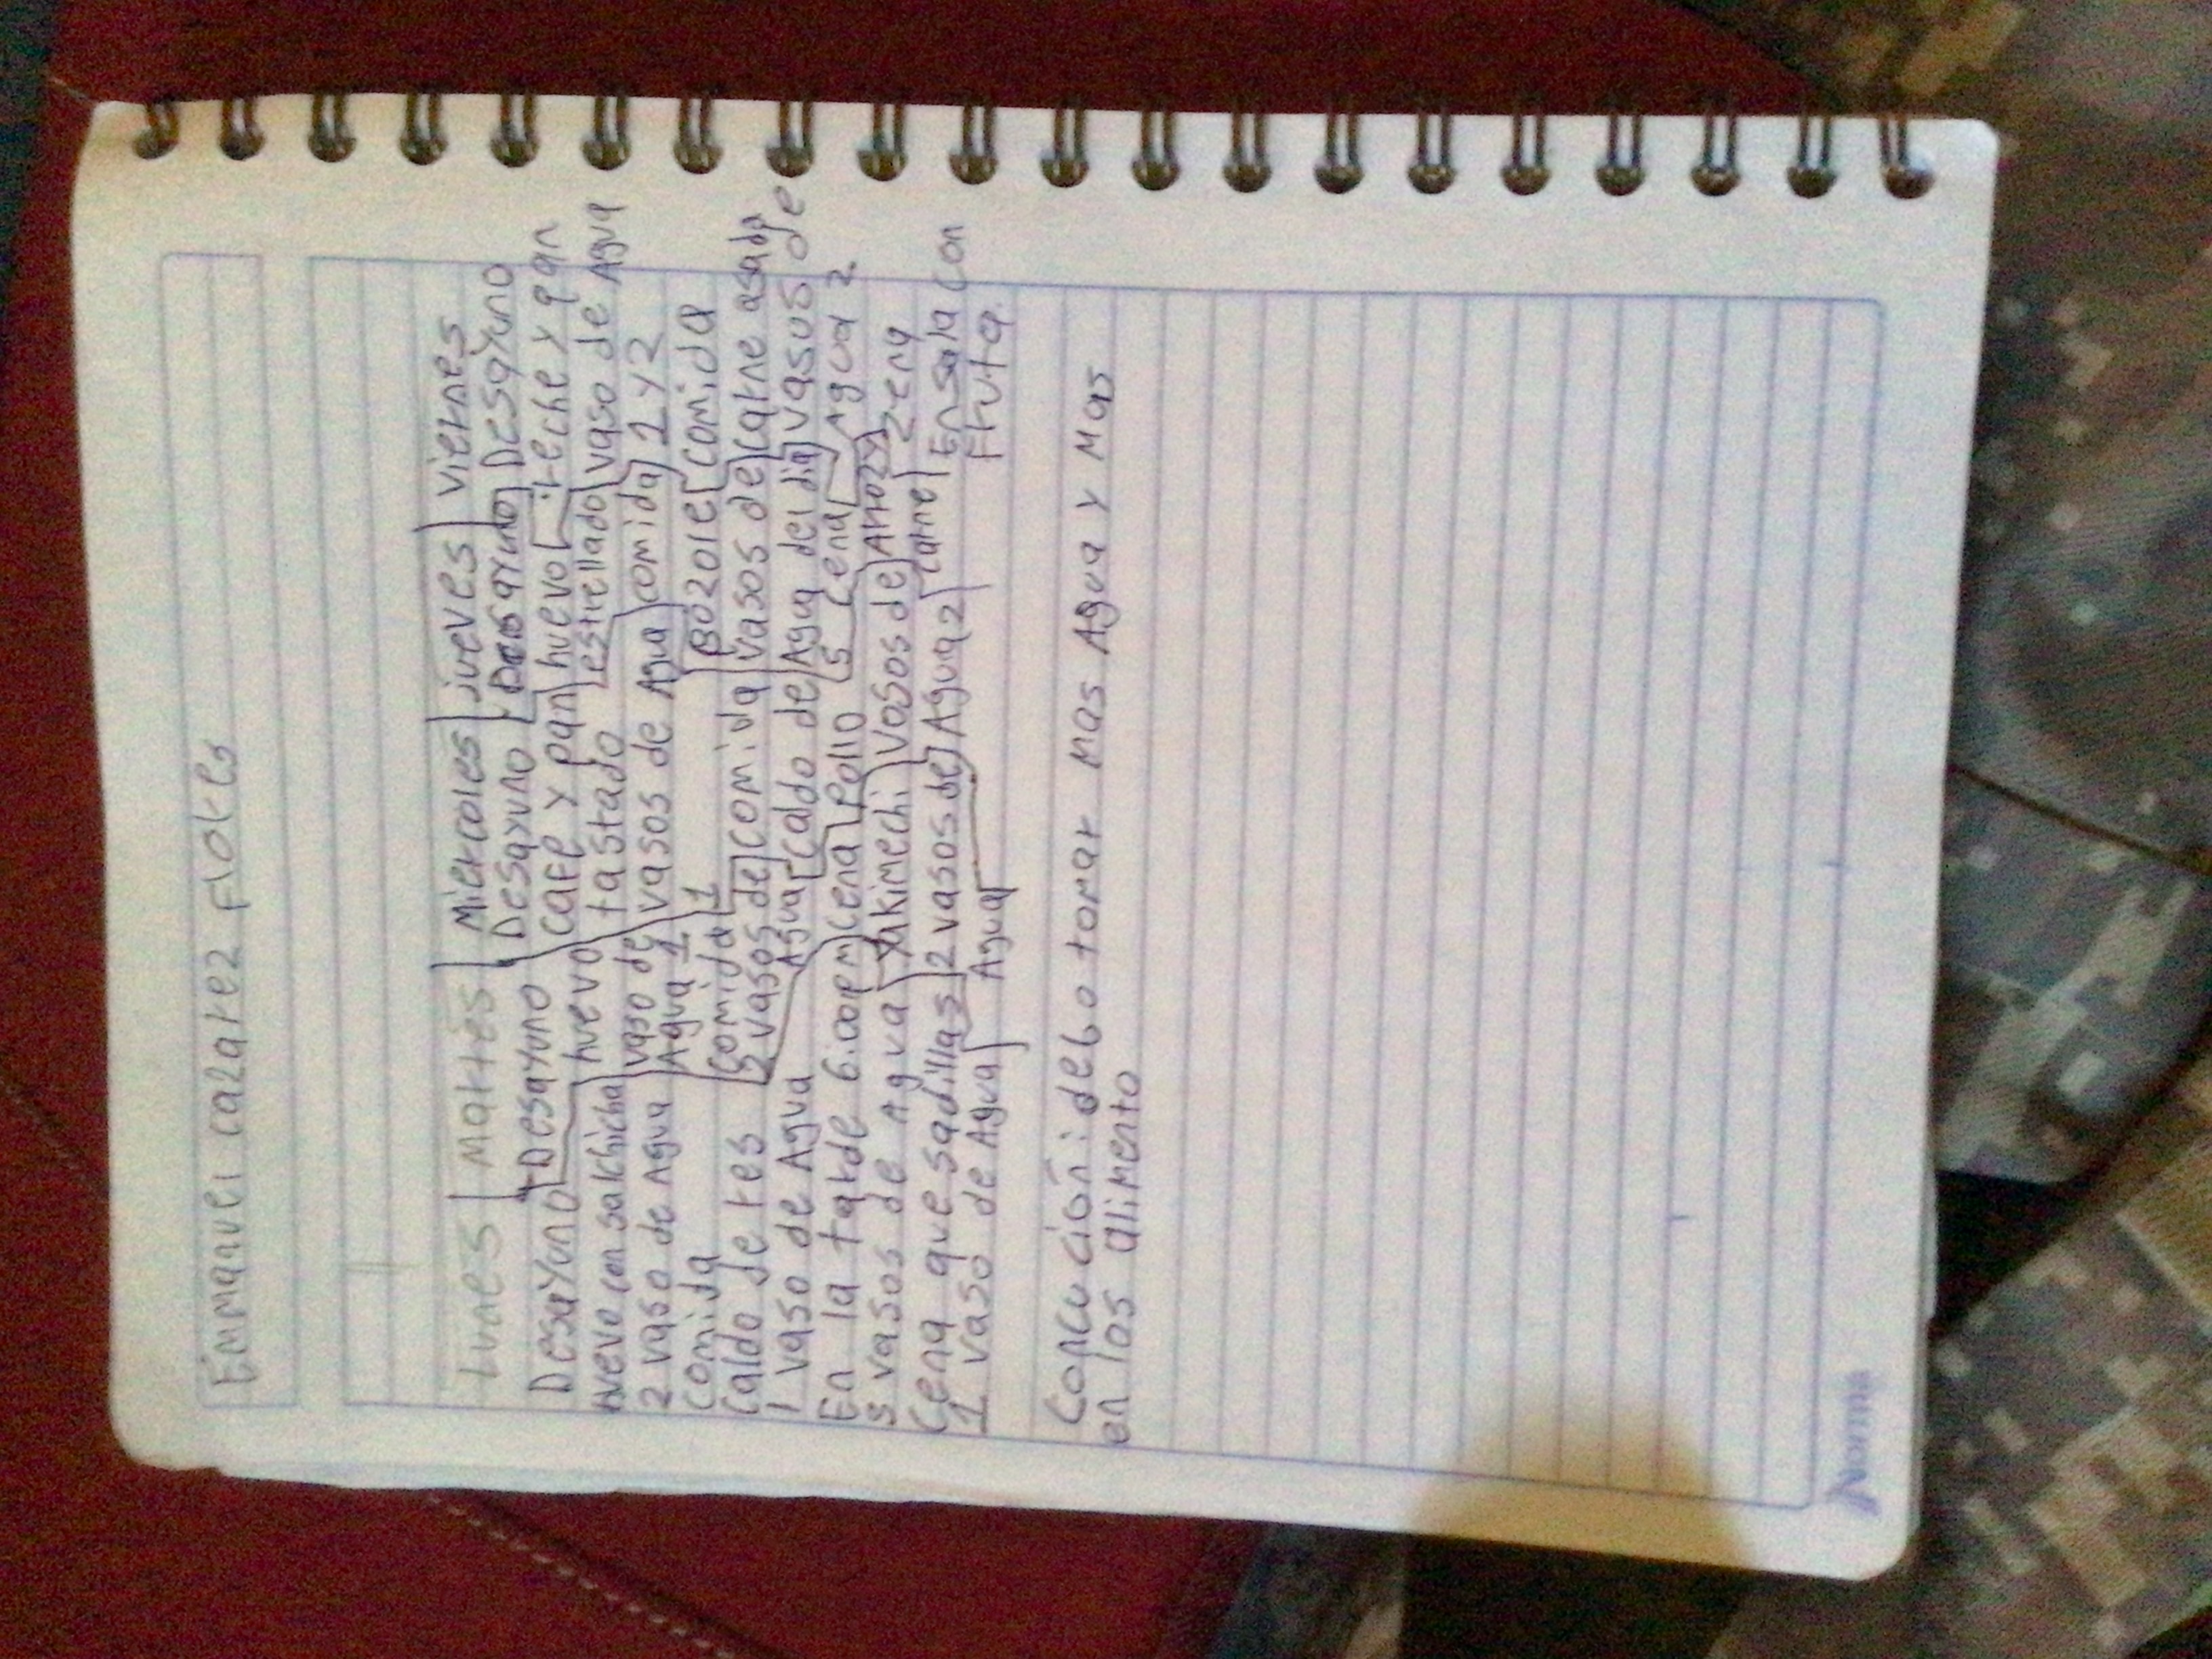 Emmanuel cazarez flores
Lunes | Martes | Miercoles | jueves | viernes
Desayuno | Desayuno | Desayuno | Desayuno | Desayuno
huevo con salchicha | huevo | cafe y pan | huevo | Leche y pan
2 vaso de Agua | vaso de | tastado | estrellado | vaso de Agua
comida | Agua 1 | vasos de Agua | comida | 1 y 2
Caldo de res | comida | 1 | Bozole | comida
1 vaso de Agua | 2 vasos de | comida | vasos de | carne asada
En la tarde 6:00pm | Agua | Caldo de | Agua del dia | vasos de
5 vasos de Agua | cena | Pollo | 5 cena | Agua 2
Cena que sadillas | Yakimechi | Vasos de | Arroz y | zena
1 vaso de Agua | 2 vasos de | Agua 2 | carne | Ensala con
Agua | Fruta
Concución: debo tomar mas Agua y Mas
en los alimento
Norma